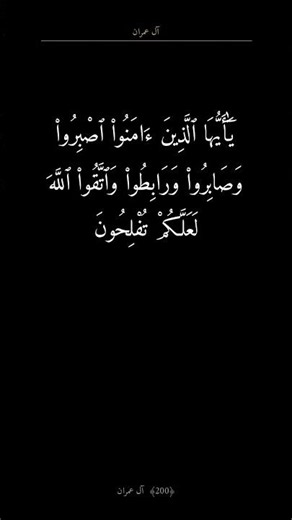 آل عمران
يَٰٓأَيُّهَا ٱلَّذِينَ ءَامَنُوا۟ ٱصْبِرُوا۟
وَصَابِرُوا۟ وَرَابِطُوا۟ وَٱتَّقُوا۟ ٱللَّهَ
لَعَلَّكُمْ تُفْلِحُونَ
آل عمران ﴿200﴾